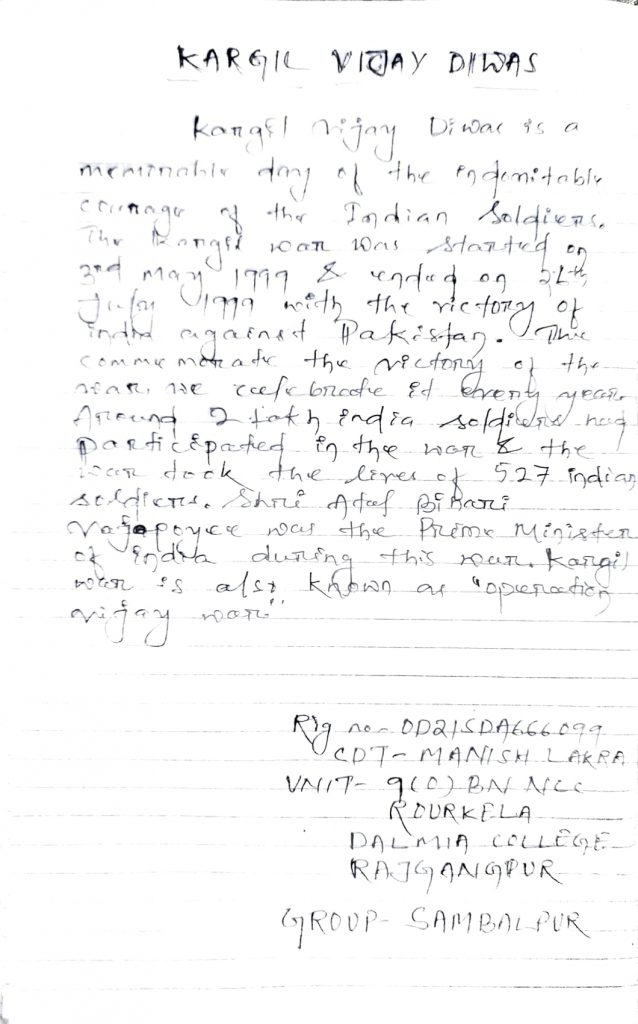 KARGIL VIJAY DIWAS
Kargil Vijay Diwas is a
memorable day of the indomitable
courage of the Indian Soldiers.
The Kargil war was started on
3rd May 1999 & ended on 26th
July 1999 with the victory of
india against Pakistan. The
commemorate the victory of the
war. we celebrate it every year.
Around 2 lakh india soldiers had
participated in the war & the
war took the lives of 527 indian
soldiers. Shri Atal Bihari
Vajpayee was the Prime Minister
of India during this war. Kargil
war is also known as "operation
vijay war"
Rig no- OD21SDA666099
CDT- MANISH LAKRA
UNIT- 9(O) BN NCC
ROURKELA
DALMIA COLLEGE
RAJGANGPUR
GROUP- SAMBALPUR